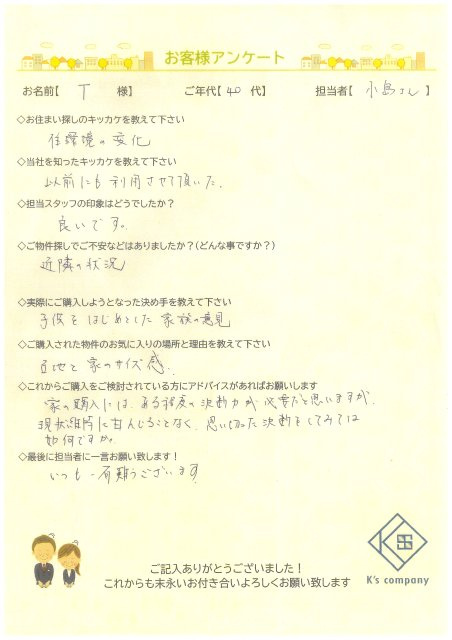 お客様アンケート
お名前【 T 様】 ご年代【 40 代】 担当者【 小島さん 】
◇お住まい探しのキッカケを教えて下さい
住環境の変化
◇当社を知ったキッカケを教えて下さい
以前にも利用させて頂いた。
◇担当スタッフの印象はどうでしたか?
良いです。
◇ご物件探しでご不安などはありましたか?(どんな事ですか?)
近隣の状況
◇実際にご購入しようとなった決め手を教えて下さい
子供をはじめとした家族の意見
◇ご購入された物件のお気に入りの場所と理由を教えて下さい
土地と家のサイズ感
◇これからご購入をご検討されている方にアドバイスがあればお願いします
家の購入には、ある程度の決断力が必要だと思いますが、
現状維持に甘んじることなく、思い切った決断をしてみては
如何ですか。
◇最後に担当者に一言お願い致します!
いつも有難うございます!
ご記入ありがとうございました!
これからも末永いお付き合いよろしくお願い致します
K's company